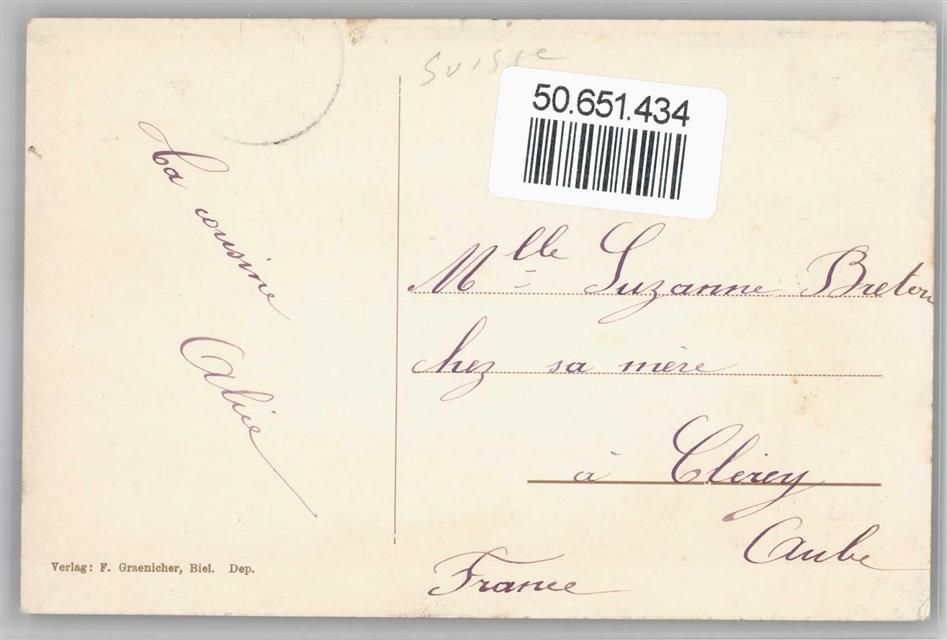 Suisse
50.651.434
Ta cousine
Alice
Mlle Suzanne Breton
chez sa mère
à Clérey
Aube
France
Verlag: F. Graenicher, Biel. Dep.